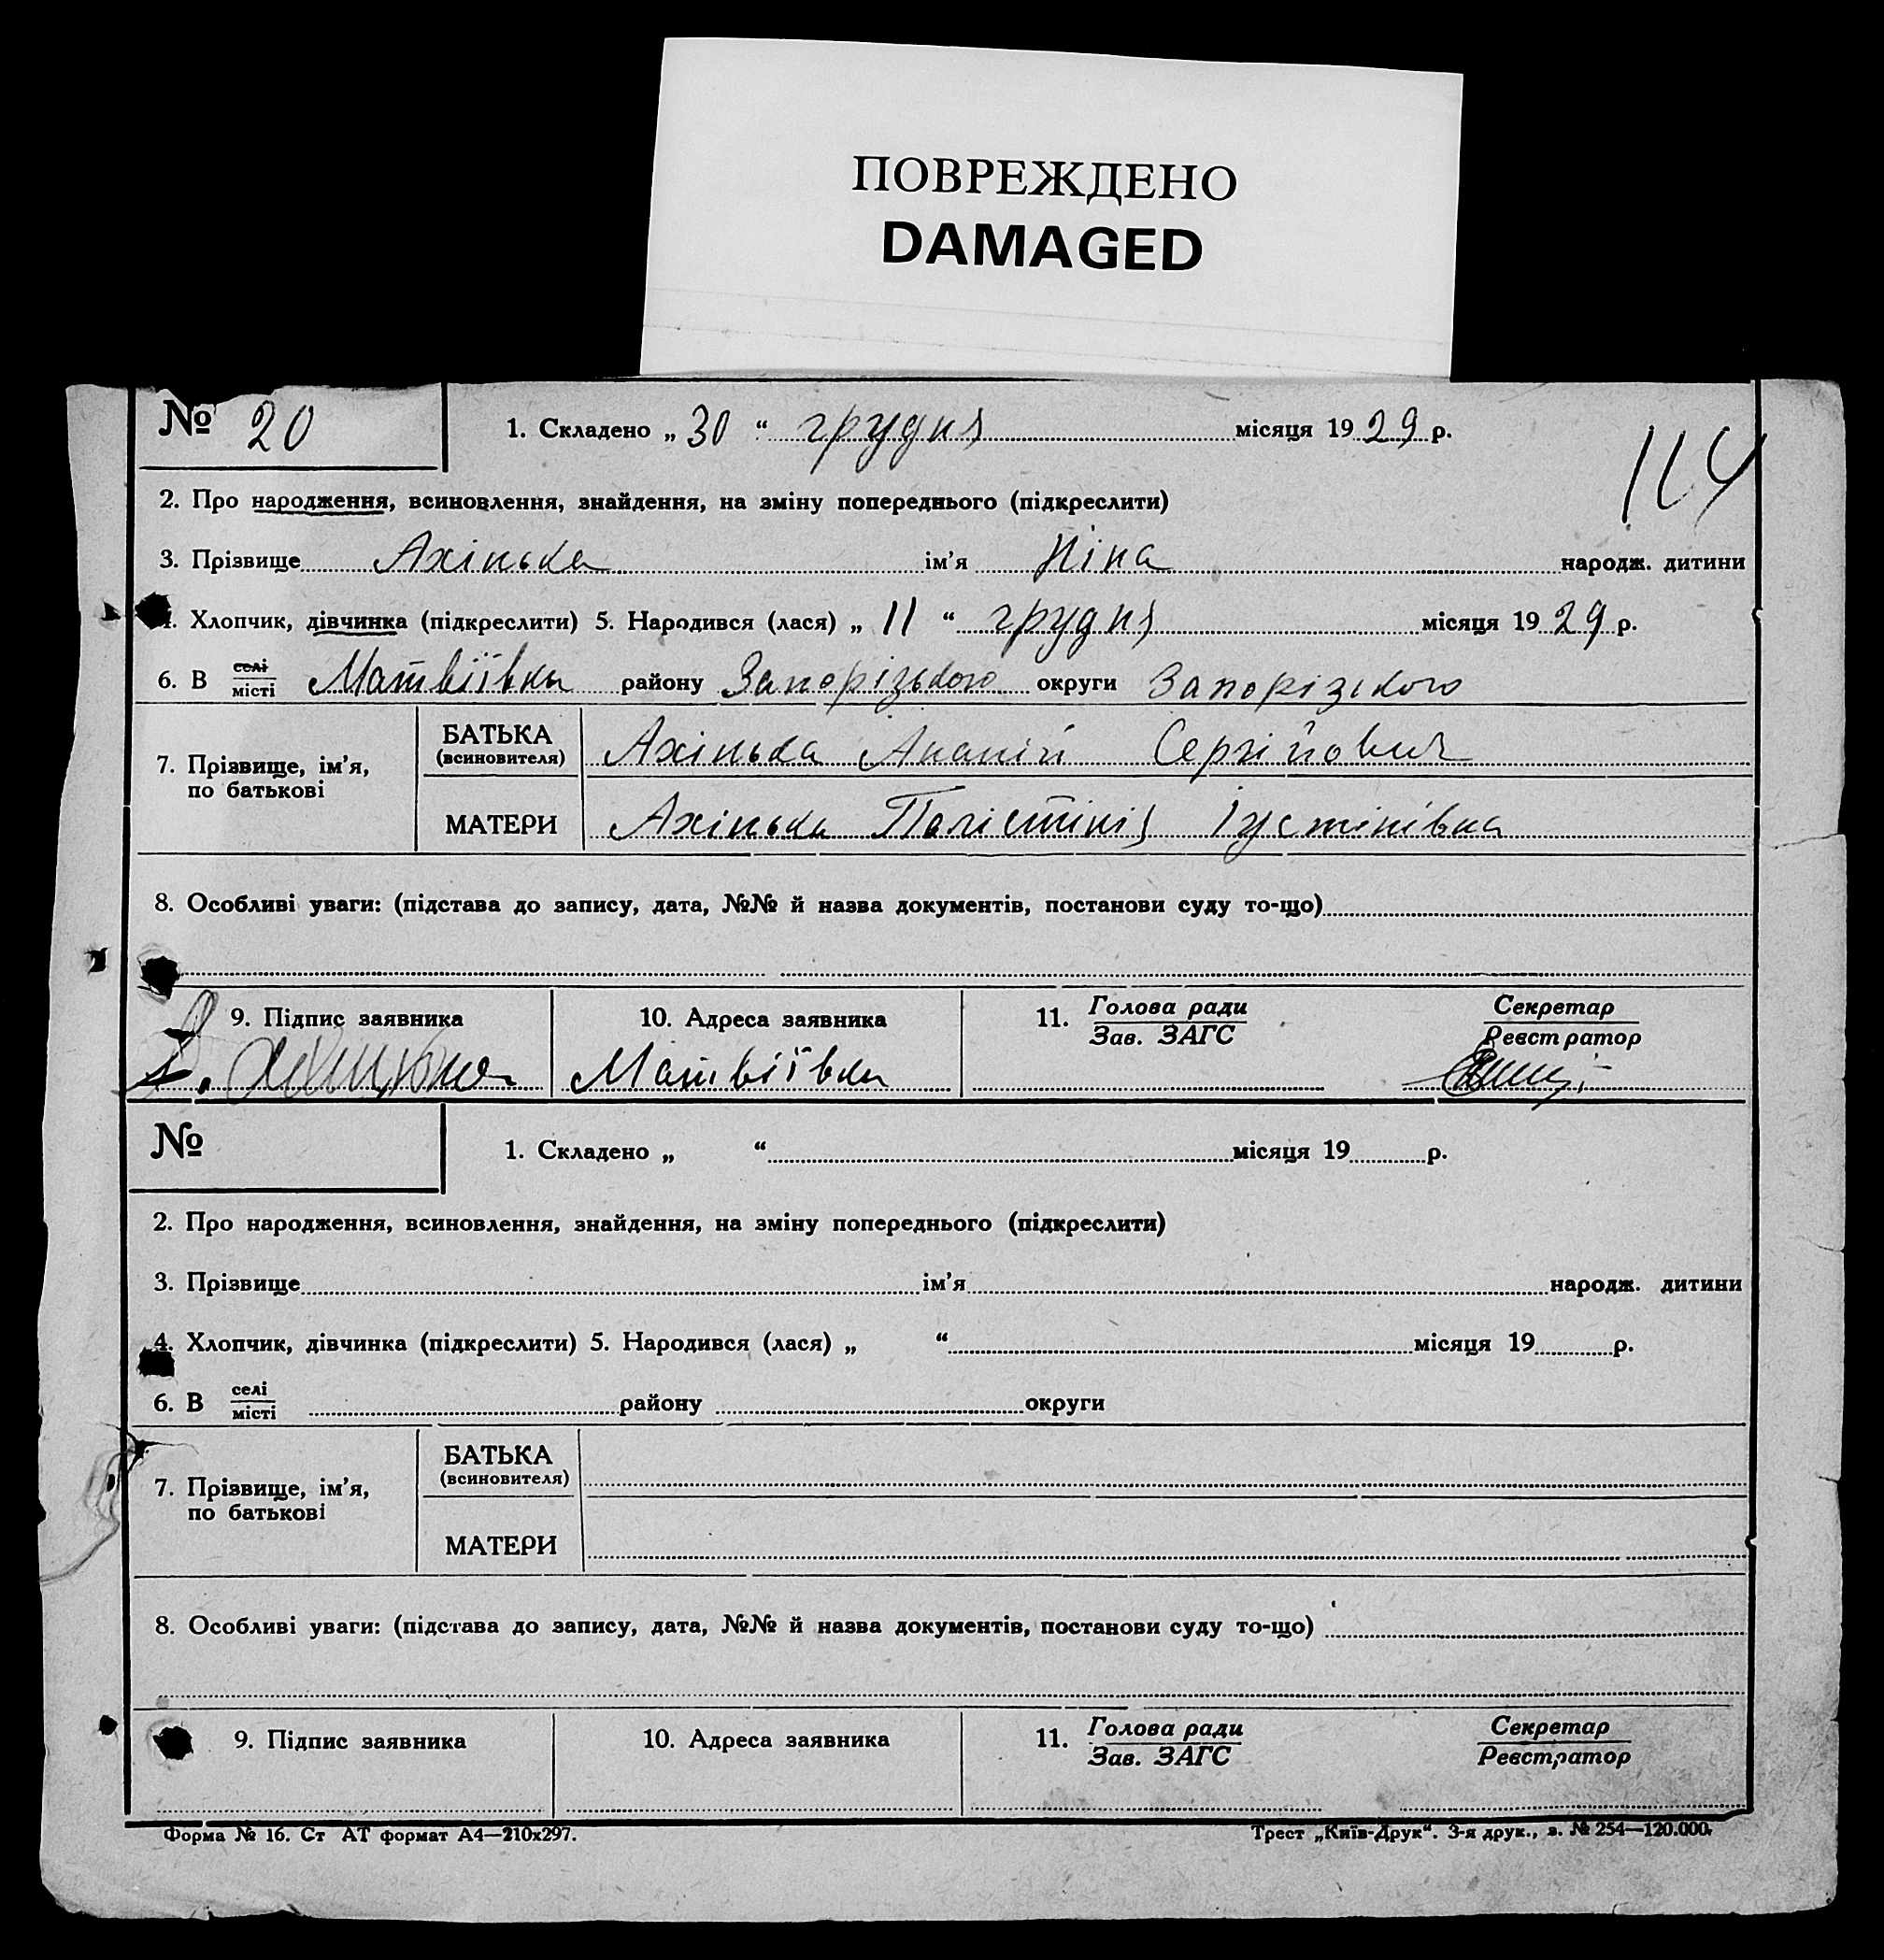 ПОВРЕЖДЕНО
DAMAGED
№ 20
1. Складено „ 30 “ грудня місяця 19 29 р.
114
2. Про народження, всиновлення, знайдення, на зміну попереднього (підкреслити)
3. Прізвище Ахінька ім’я Ніна народж. дитини
4. Хлопчик, дівчинка (підкреслити) 5. Народився (лася) „ 11 “ грудня місяця 19 29 р.
6. В селі/місті Матвіївка району Запорізького округи Запорізького
7. Прізвище, ім’я, по батькові
БАТЬКА (всиновителя) Ахінька Ананій Сергійович
МАТЕРИ Ахінька Палістінія Іустінівна
8. Особливі уваги: (підстава до запису, дата, №№ й назва документів, постанови суду то-що)
9. Підпис заявника
10. Адреса заявника
11. Голова ради/Зав. ЗАГС
Секретар/Реєстратор
Матвіївка
№
1. Складено „ “ місяця 19 р.
2. Про народження, всиновлення, знайдення, на зміну попереднього (підкреслити)
3. Прізвище ім’я народж. дитини
4. Хлопчик, дівчинка (підкреслити) 5. Народився (лася) „ “ місяця 19 р.
6. В селі/місті району округи
7. Прізвище, ім’я, по батькові
БАТЬКА (всиновителя)
МАТЕРИ
8. Особливі уваги: (підстава до запису, дата, №№ й назва документів, постанови суду то-що)
9. Підпис заявника
10. Адреса заявника
11. Голова ради/Зав. ЗАГС
Секретар/Реєстратор
Форма № 16. Ст АТ формат А4—210х297.
Трест „Київ-Друк“. 3-я друк., з. № 254—120.000.